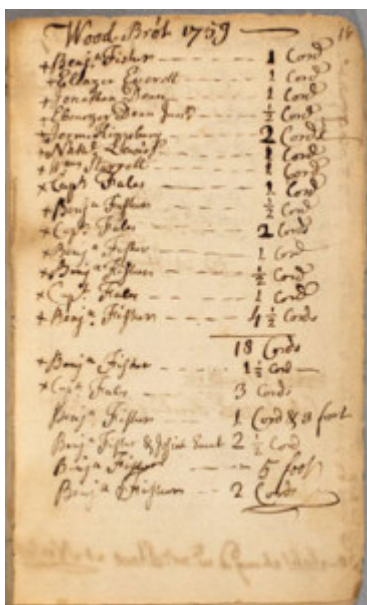 Wood Brot 1759 —
+ Benja Fisher — — — 1 Cord
+ Eleazer Everett — — 1 Cord
+ Jonathan Dean — — 1 Cord
+ Ebenezer Dean Junr — ½ Cord
+ Jeremi Kingsbury — 2 Cords
+ Nathl Lewis — — 1 Cord
+ Wm Starrett — — 1 Cord
× Capt Fales — — 1 Cord
+ Benja Fisher — — ½ Cord
× Capt Fales — — 2 Cords
× Benja Fisher — — 1 Cord
× Benja Fisher — — ½ Cord
× Capt Fales — — 1 Cord
+ Benja Fisher — — 4 ½ Cords
18 Cords
+ Benja Fisher — — 1 ½ Cord
× Capt Fales — 3 Cords
Benja Fisher 1 Cord & 3 foot
Benja Fisher & 2 ½ Cord
Benja Fisher — 5 foot
Benja Fisher — — 2 Cords